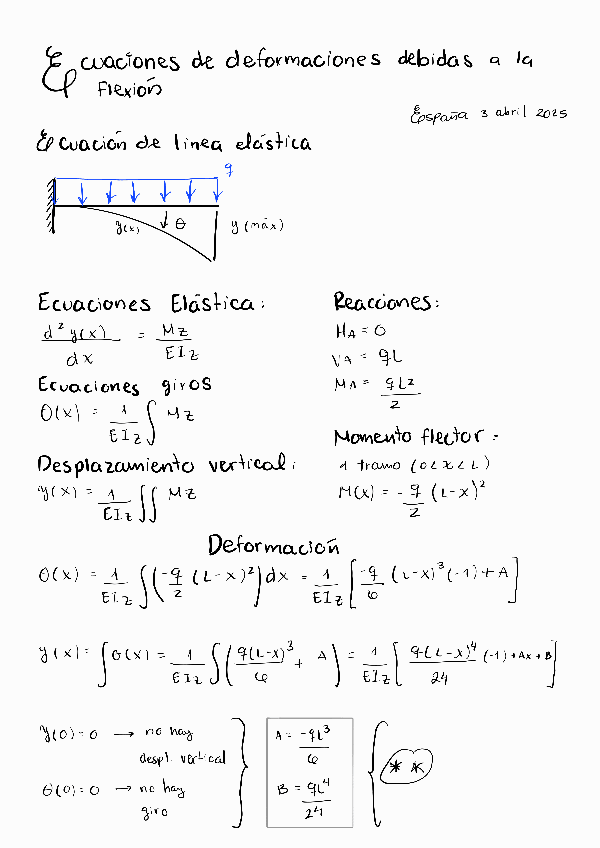 Ecuaciones de deformaciones debidas a la
Flexión
España 3 abril 2025
Ecuación de linea elástica
q
y(x) θ y (máx)
Ecuaciones Elástica:
d² y(x) / dx = Mz / EIz
Ecuaciones giros
θ(x) = 1/EIz ∫ Mz
Desplazamiento vertical:
y(x) = 1/EIz ∫∫ Mz
Reacciones:
HA = 0
VA = qL
MA = qL2 / 2
Momento flector:
1 tramo (0<x<L)
M(x) = - q/2 (L-x)²
Deformación
θ(x) = 1/EIz ∫(-q/2 (L-x)²)dx = 1/EIz [-q/6 (L-x)³(-1)+A]
y(x) = ∫θ(x) = 1/EIz ∫(q(L-x)³/6 + A) = 1/EIz [q(L-x)⁴/24 (-1)+Ax+B]
y(0)=0 → no hay
despl. vertical
θ(0)=0 → no hay
giro
A = -qL³/6
B = qL⁴/24
**